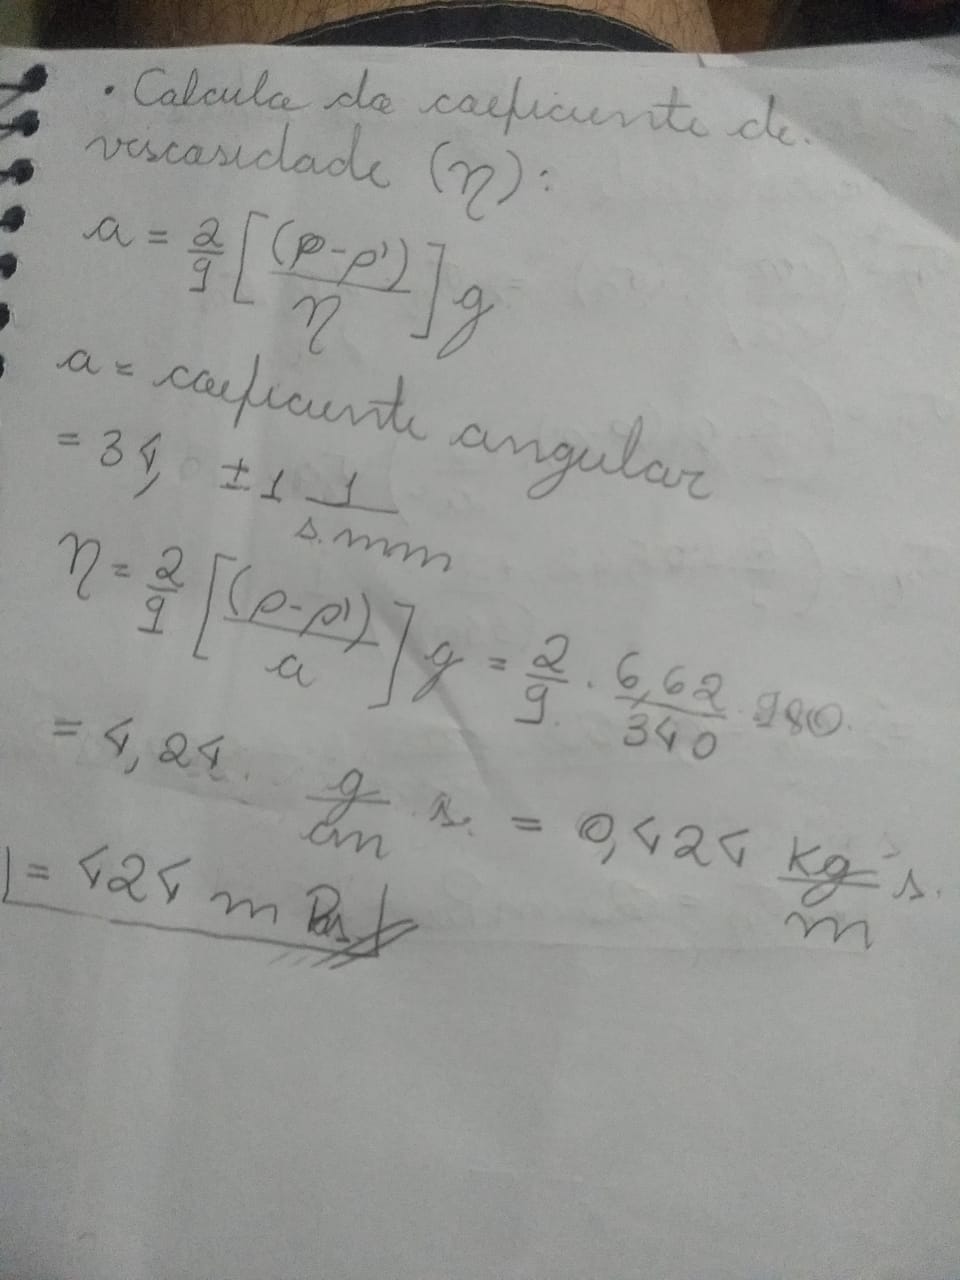 • Calculo do coeficiente de
viscosidade (η):
a = 2/9 [(ρ-ρ')/η] g
a = coeficiente angular
= 34, ± 1 1/s.mm
η = 2/9 [(ρ-ρ')/a] g = 2/9 . 6,62/340 . 980
= 4,24 g/cm . s. = 0,424 kg/m s.
= 424 m Pas